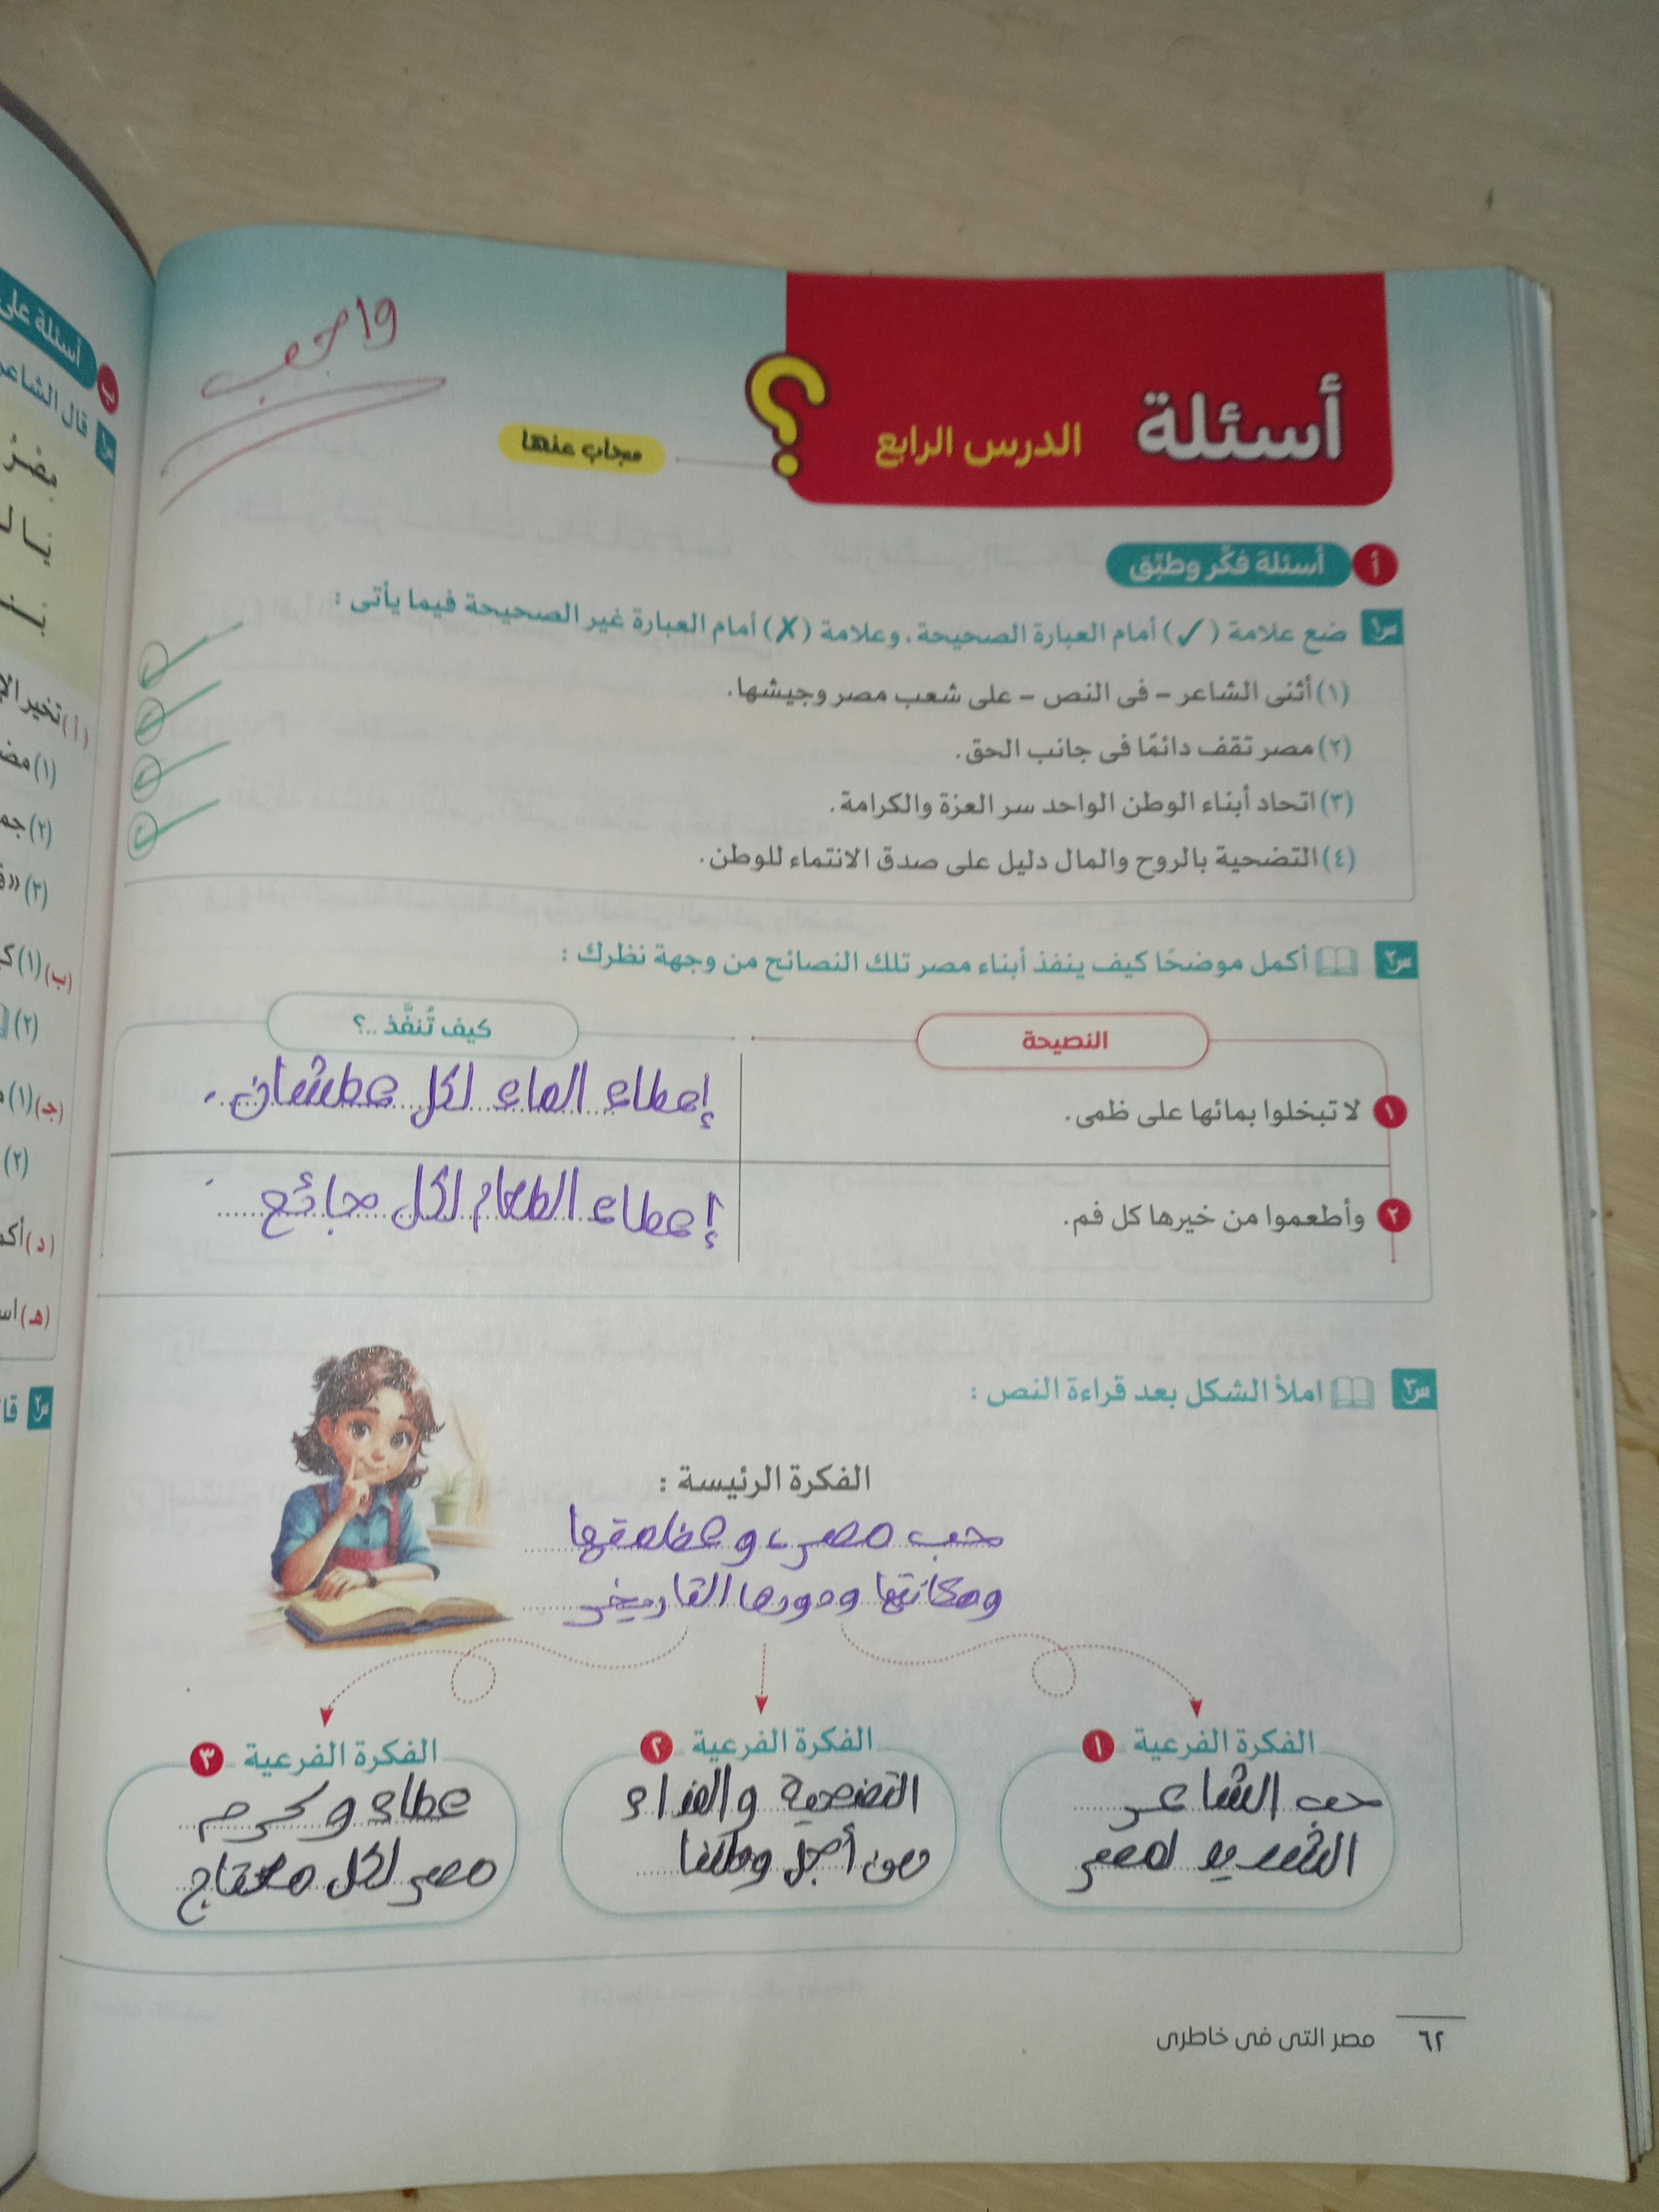 واجب
أسئلة
الدرس الرابع
؟
مجاب عنها
أ أسئلة فكِّر وطبِّق
س١ ضع علامة (✓) أمام العبارة الصحيحة، وعلامة (✗) أمام العبارة غير الصحيحة فيما يأتى :
(١) أثنى الشاعر - فى النص - على شعب مصر وجيشها. ✓
(٢) مصر تقف دائمًا فى جانب الحق. ✓
(٣) اتحاد أبناء الوطن الواحد سر العزة والكرامة. ✓
(٤) التضحية بالروح والمال دليل على صدق الانتماء للوطن. ✓
س٢ أكمل موضحًا كيف ينفذ أبناء مصر تلك النصائح من وجهة نظرك :
النصيحة
كيف تُنفَّذ ..؟
١ لا تبخلوا بمائها على ظمى.
إعطاء الماء لكل عطشان.
٢ وأطعموا من خيرها كل فم.
إعطاء الطعام لكل جائع.
س٣ املأ الشكل بعد قراءة النص :
الفكرة الرئيسة :
حب مصر، وعظمتها
ومكانتها ودورها التاريخى
الفكرة الفرعية ١
حب الشاعر
الشديد لمصر
الفكرة الفرعية ٢
التضحية والفداء
من أجل وطننا
الفكرة الفرعية ٣
عطاء وكرم
مصر لكل محتاج
٦٢ مصر التى فى خاطرى
ب أسئلة على
س١ قال الشاعر
(أ) تخير الإ
(١) مض
(٢) جم
(٣) «ف
(ب) (١) ك
(٢)
(جـ) (١)
(٢)
(د) أك
(هـ) اس
س٢ قا